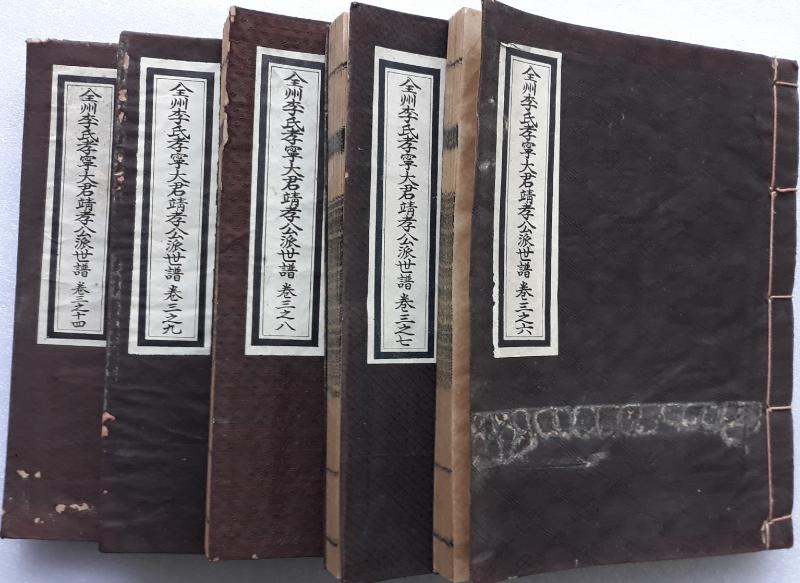 全州李氏孝寧大君靖孝公派世譜 卷三之六
全州李氏孝寧大君靖孝公派世譜 卷三之七
全州李氏孝寧大君靖孝公派世譜 卷三之八
全州李氏孝寧大君靖孝公派世譜 卷三之九
全州李氏孝寧大君靖孝公派世譜 卷三之十四